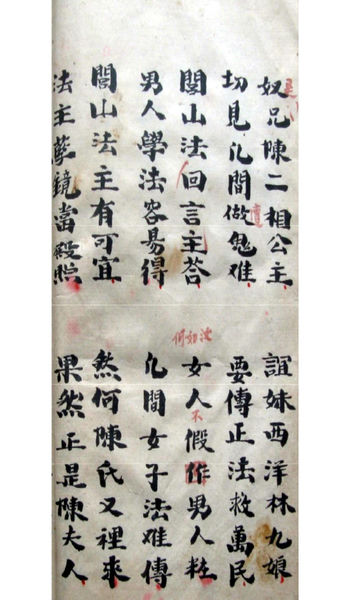 奴兄陳二相公主 誼妹西洋林九娘
切見凡間做鬼难 要傳正法救萬民
閭山法回言主荅 女人假作男人粧
汝如何
不
男人學法容易得 凡間女子法难傳
閭山法主有可宜 然何陳氏又裡來
法主孽鏡當殿照 果然正是陳夫人